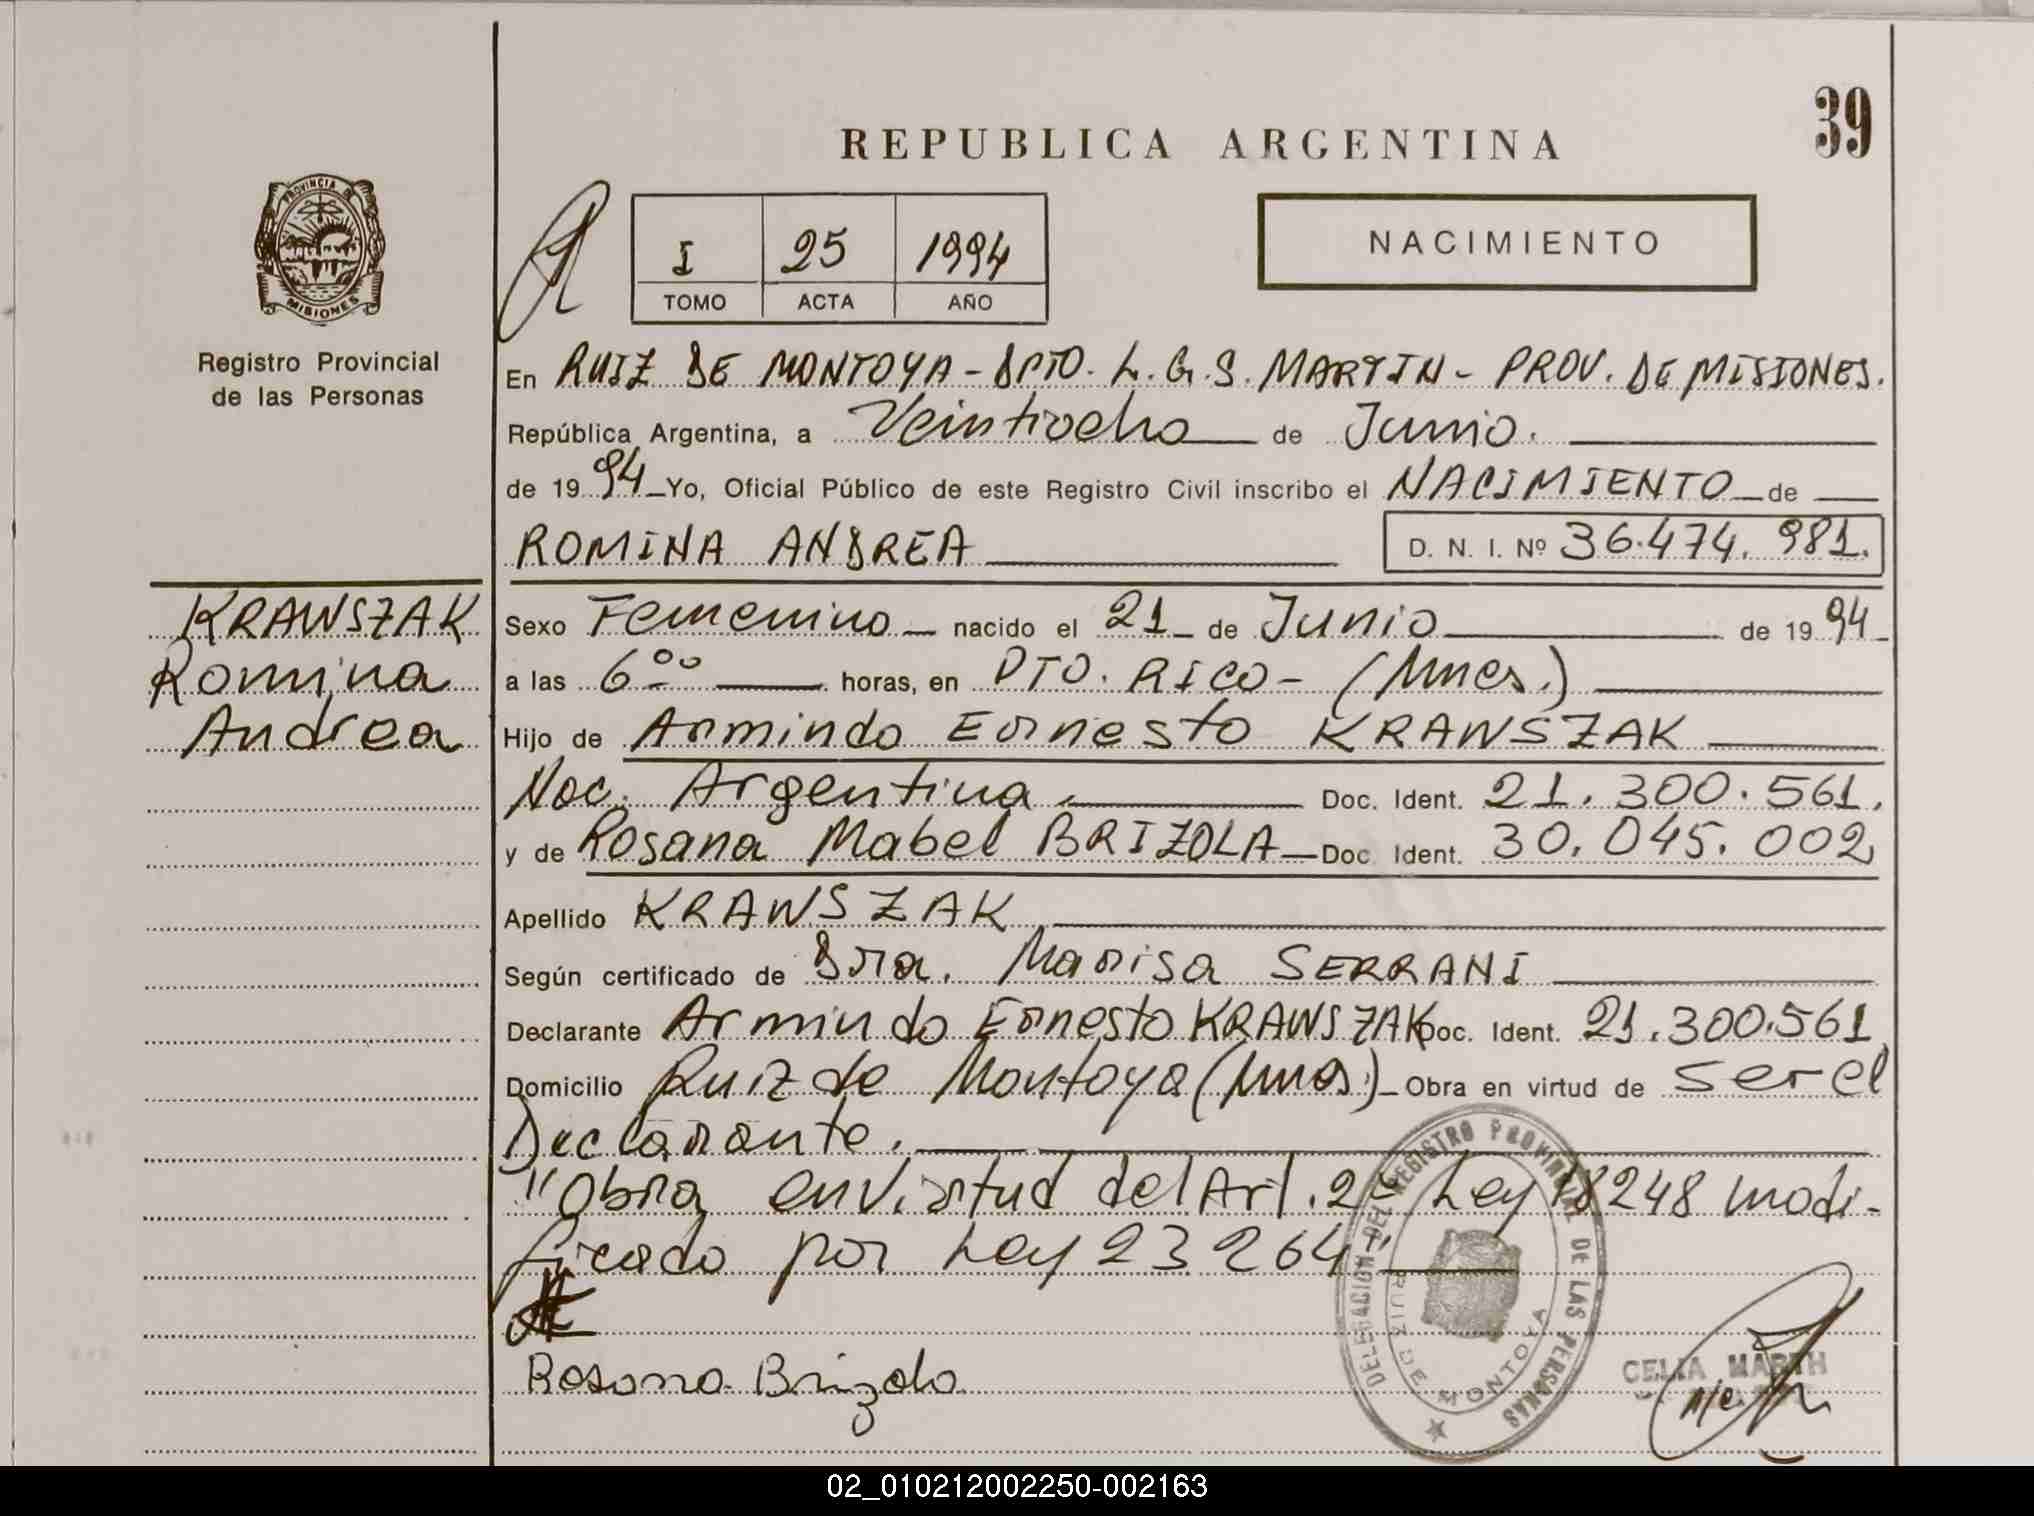 REPUBLICA ARGENTINA
39
PROVINCIA DE
MISIONES
Registro Provincial
de las Personas
I 25 1994
TOMO ACTA AÑO
NACIMIENTO
En RUIZ DE MONTOYA - DPTO. L. G. S. MARTIN - PROV. DE MISIONES.
República Argentina, a Veintiocho de Junio.
de 1994 Yo, Oficial Público de este Registro Civil inscribo el NACIMIENTO de
ROMINA ANDREA D. N. I. Nº 36.474.981.
KRAWSZAK
Romina
Andrea
Sexo Femenino nacido el 21 de Junio de 1994
a las 6⁰⁰ horas, en PTO. RICO - (Mnes.)
Hijo de Armindo Ernesto KRAWSZAK
Nac. Argentina. Doc. Ident. 21.300.561.
y de Rosana Mabel BRIZOLA Doc. Ident. 30.045.002
Apellido KRAWSZAK
Según certificado de Dra. Marisa SERRANI
Declarante Armindo Ernesto KRAWSZAK Doc. Ident. 21.300.561
Domicilio Ruiz de Montoya (Mnes.) Obra en virtud de ser el
Declarante.
"Obra en virtud del Art. 2º Ley 18248 modi-
ficado por Ley 23264"
DELEGACION DEL REGISTRO PROVINCIAL DE LAS PERSONAS
RUIZ DE MONTOYA
Rosana Brizola
CELIA
02_010212002250-002163